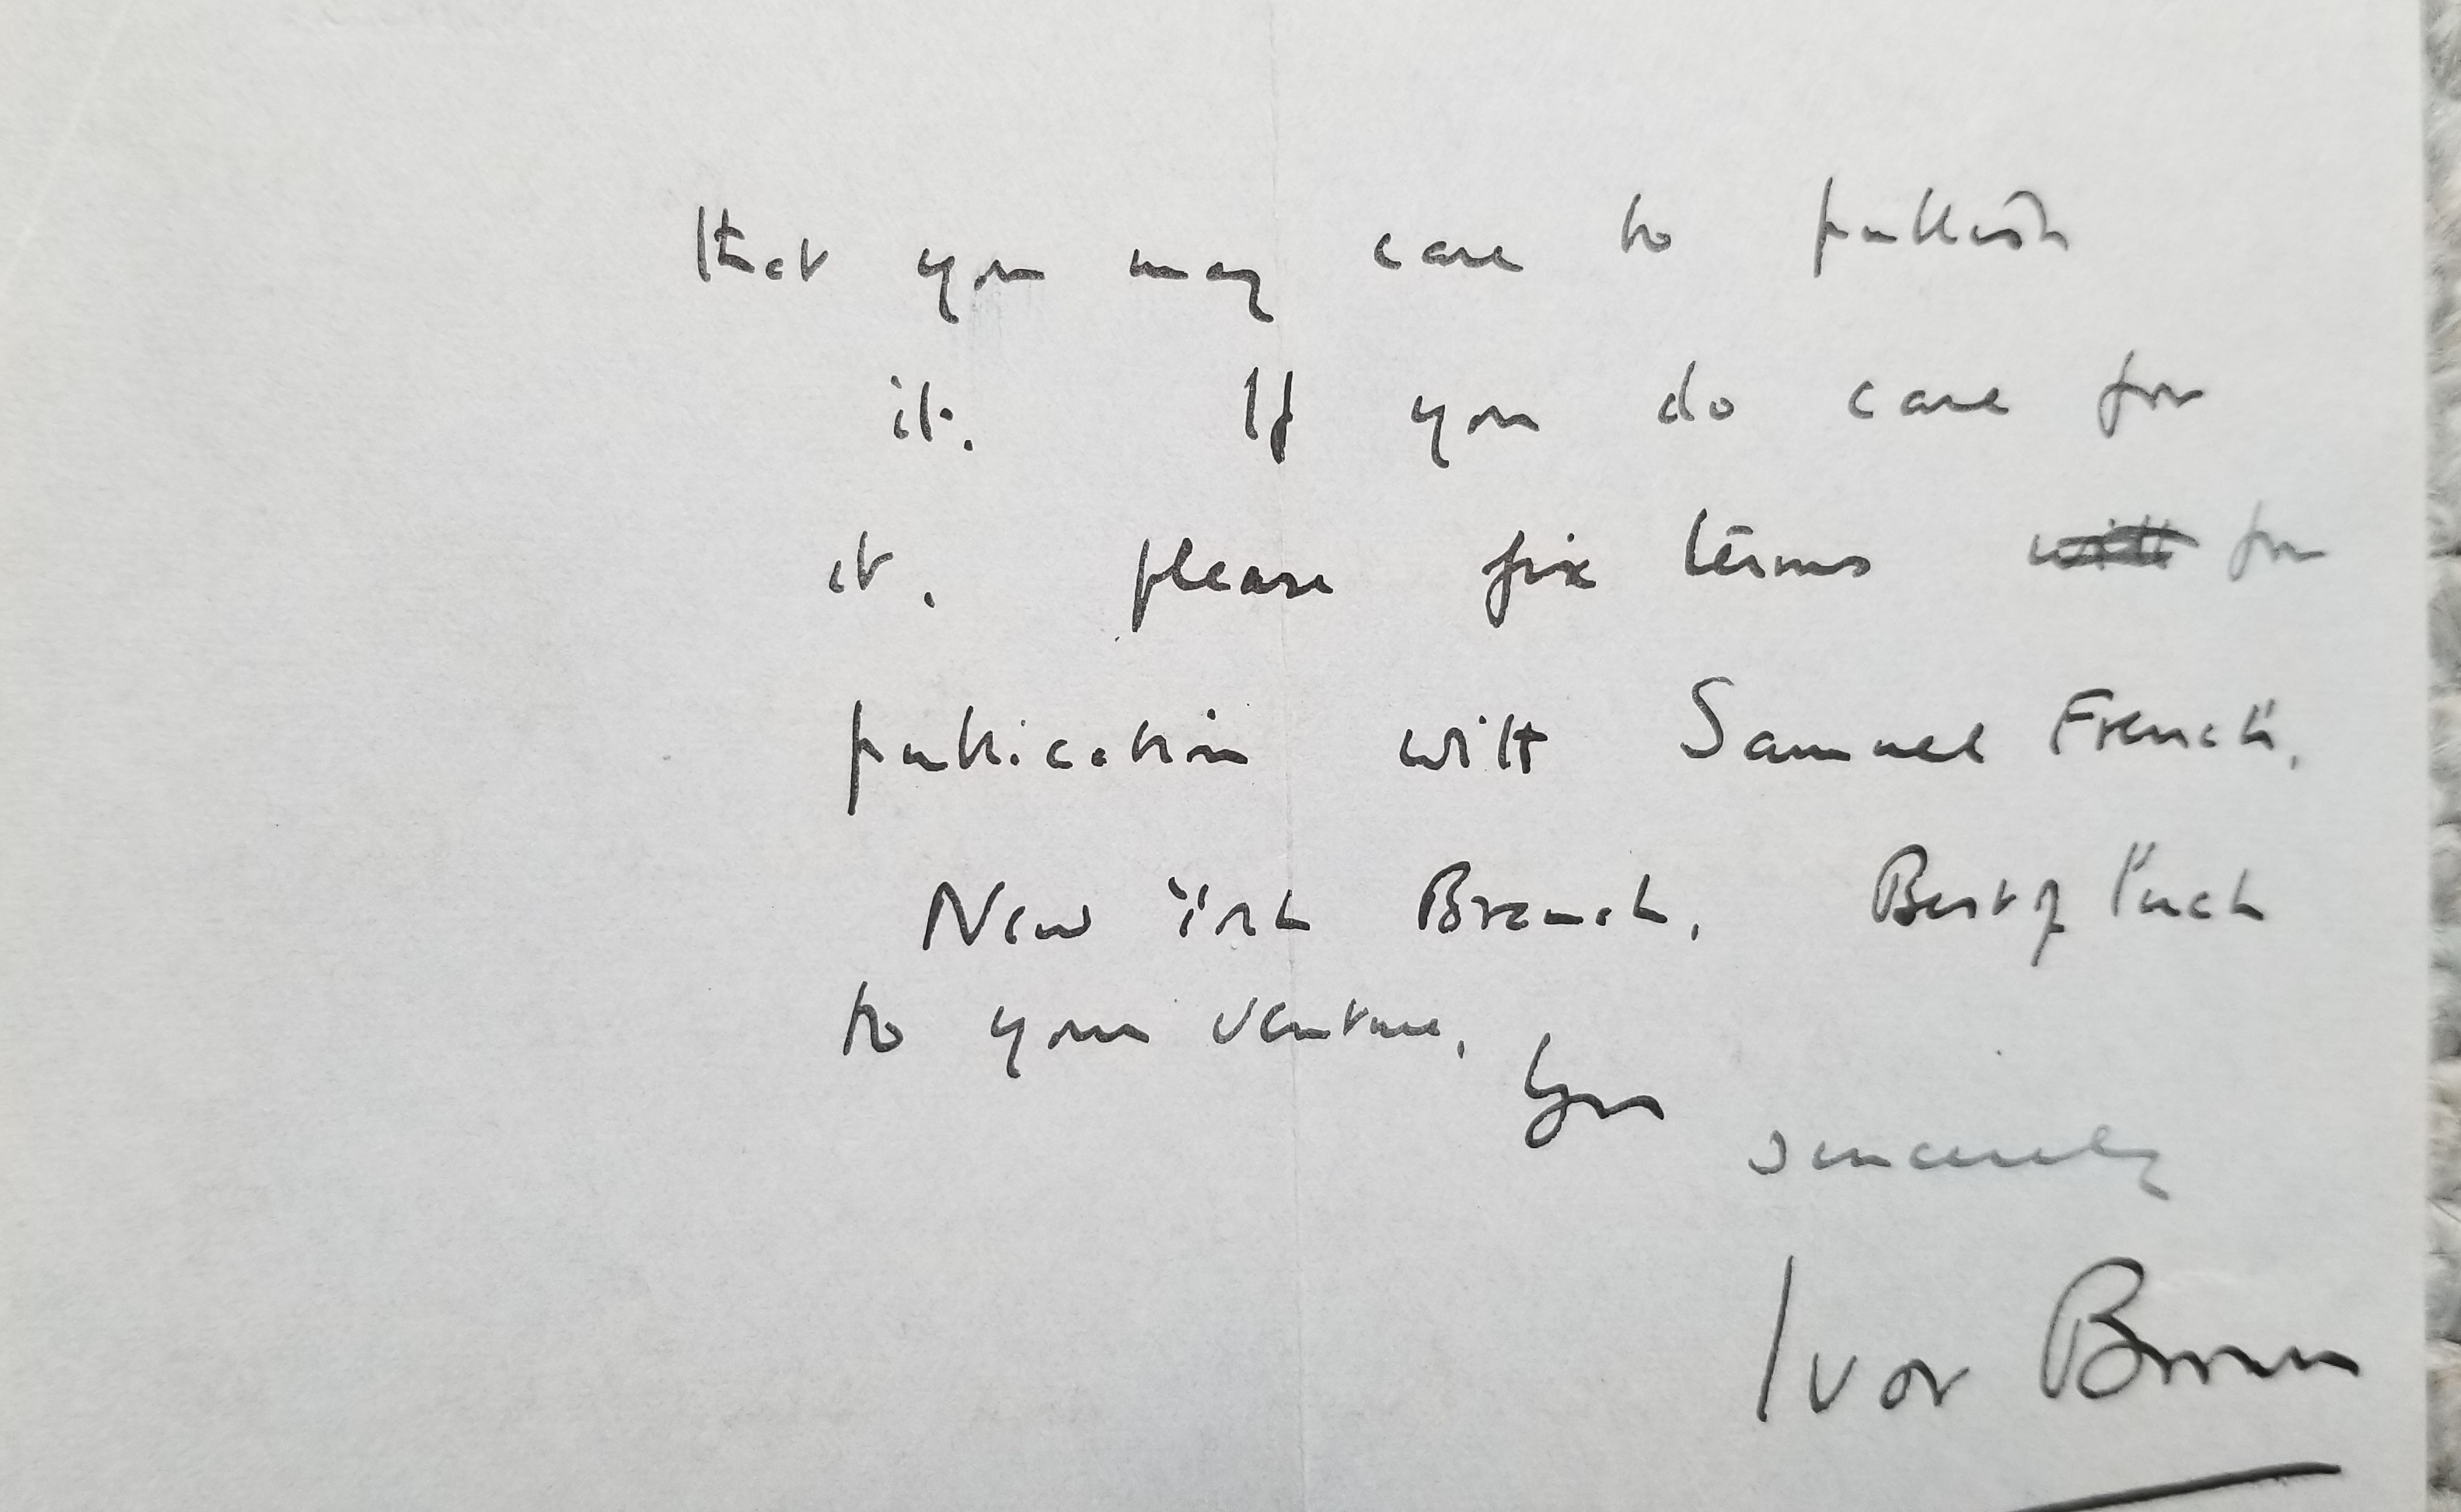 that you may care to publish
it. If you do care for
it, please fix terms with for
publication with Samuel French,
New York Branch. Best of luck
to your venture.
Yrs
sincerely
Ivor Brown